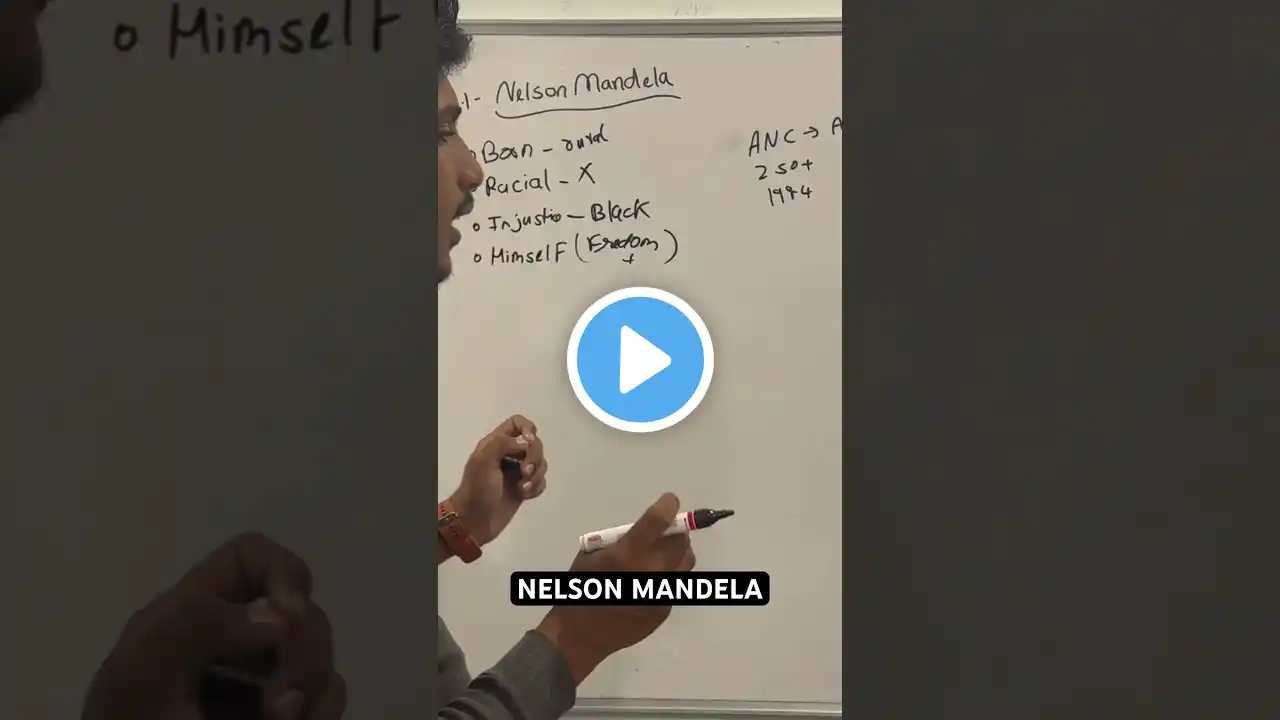 Himself
1- Nelson Mandela
Born - rural
Racial - X
Injustic - Black
Himself (Freedom)
+
ANC → A
250+
1994
NELSON MANDELA